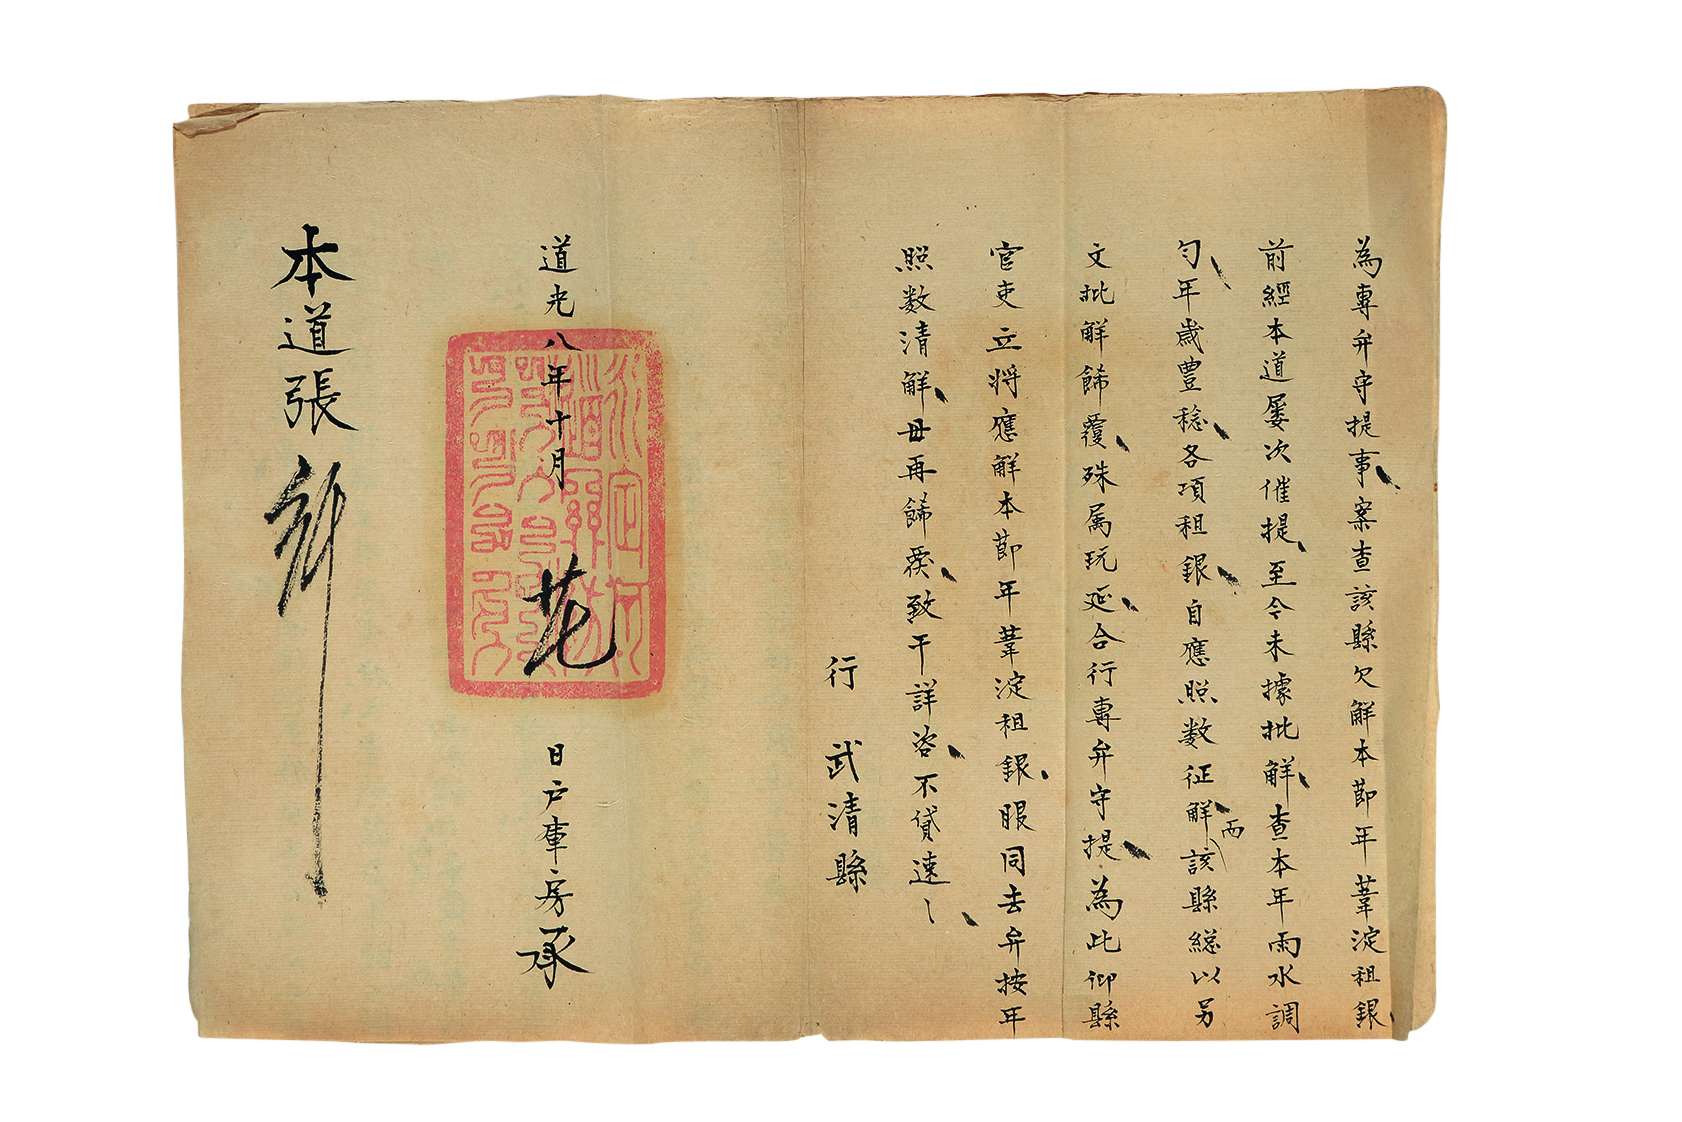 為專弁守提事案查該縣欠解本節年葦淀租銀
前經本道屢次催提至今未據批解查本年雨水調
勻年歲豐稔各項租銀自應照数征解而該縣總以另
文批解餙覆殊属玩延合行專弁守提為此仰縣
官吏立将應解本節年葦淀租銀眼同去弁按年
照数清解毋再餙覆致干詳咨不貸速〻
行武清縣
道光八年十月 日户庫房承
本道張